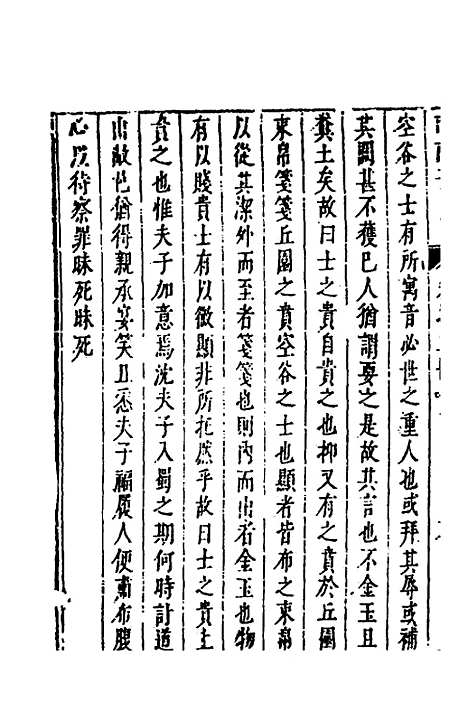 空谷之士有所寓音必世之重人也或拜其辱或補
其闕甚不獲已人猶謂要之是故其言也不金玉且
糞土矣故曰士之貴自貴之也抑又有之賁於丘園
束帛箋箋丘園之賁空谷之士也顯者皆布之束帛
以從其潔外而至者箋箋也則內而出者金玉也物
有以賤貴士有以微顯非所挖然乎故曰士之貴士
貴之也惟夫子加意焉沈夫子入蜀之期何時計道
出敝邑猶得親承宴笑且悉夫子福履人便肅布腹
心以待察罪昧死昧死